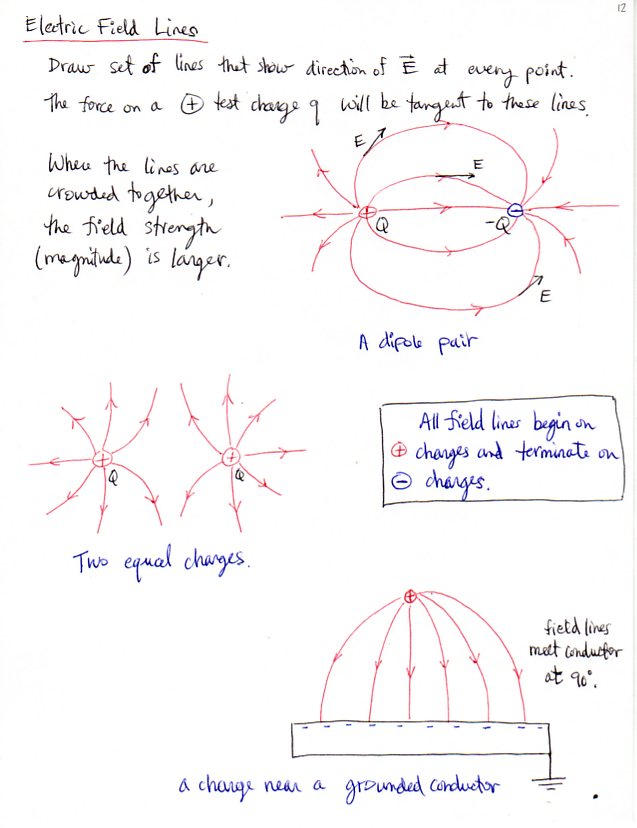 12
Electric Field Lines
Draw set of lines that show direction of E⃗ at every point.
The force on a ⊕ test charge q will be tangent to these lines.
Where the lines are
crowded together,
the field strength
(magnitude) is larger.
E
E
Q
-Q
E
A dipole pair
Q
Q
Two equal charges.
All field lines begin on
⊕ charges and terminate on
⊖ charges.
field lines
meet conductor
at 90°.
a charge near a grounded conductor